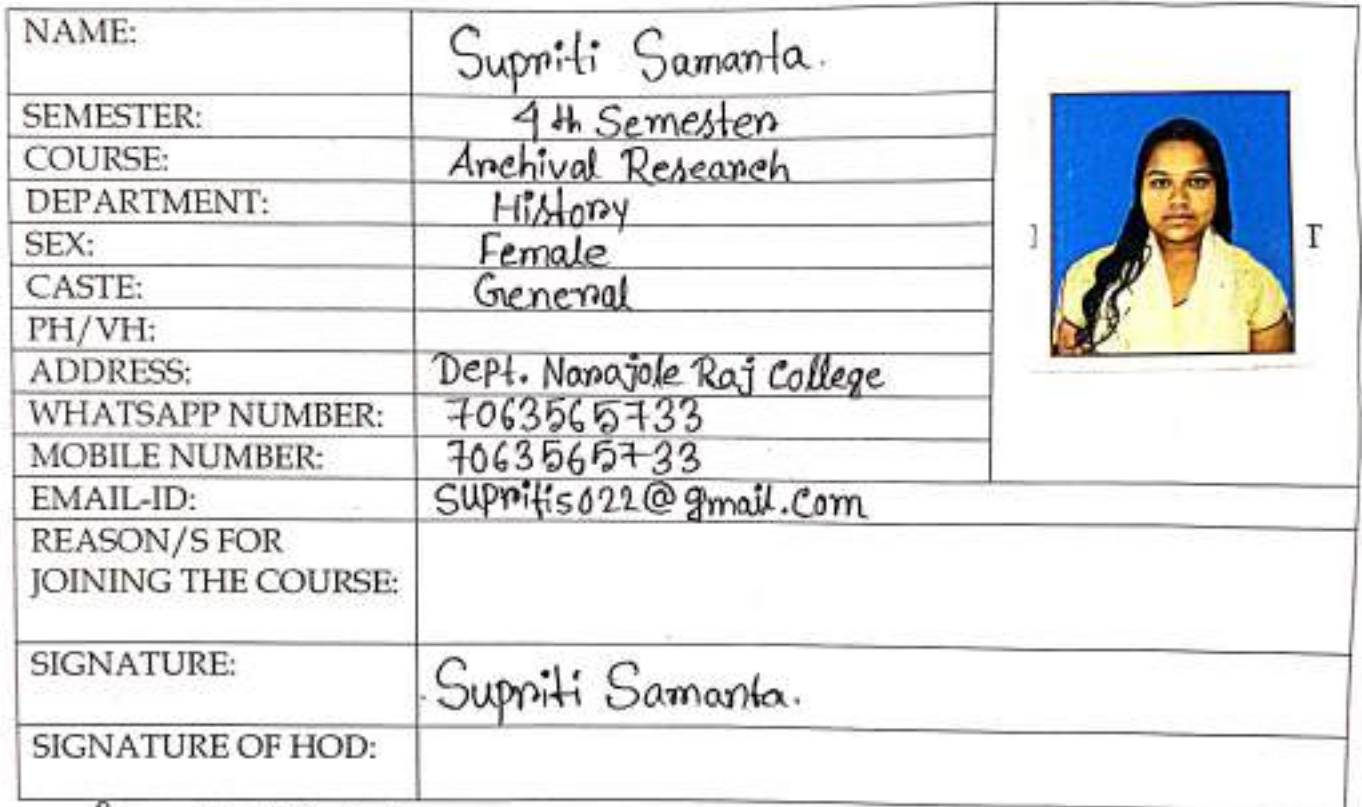 NAME: Supriti Samanta.
SEMESTER: 4th Semester
COURSE: Archival Research
DEPARTMENT: History
SEX: Female
CASTE: General
PH/VH:
ADDRESS: Dept. Narajole Raj College
WHATSAPP NUMBER: 7063565733
MOBILE NUMBER: 7063565733
EMAIL-ID: supritis022@gmail.com
REASON/S FOR
JOINING THE COURSE:
SIGNATURE: Supriti Samanta.
SIGNATURE OF HOD: